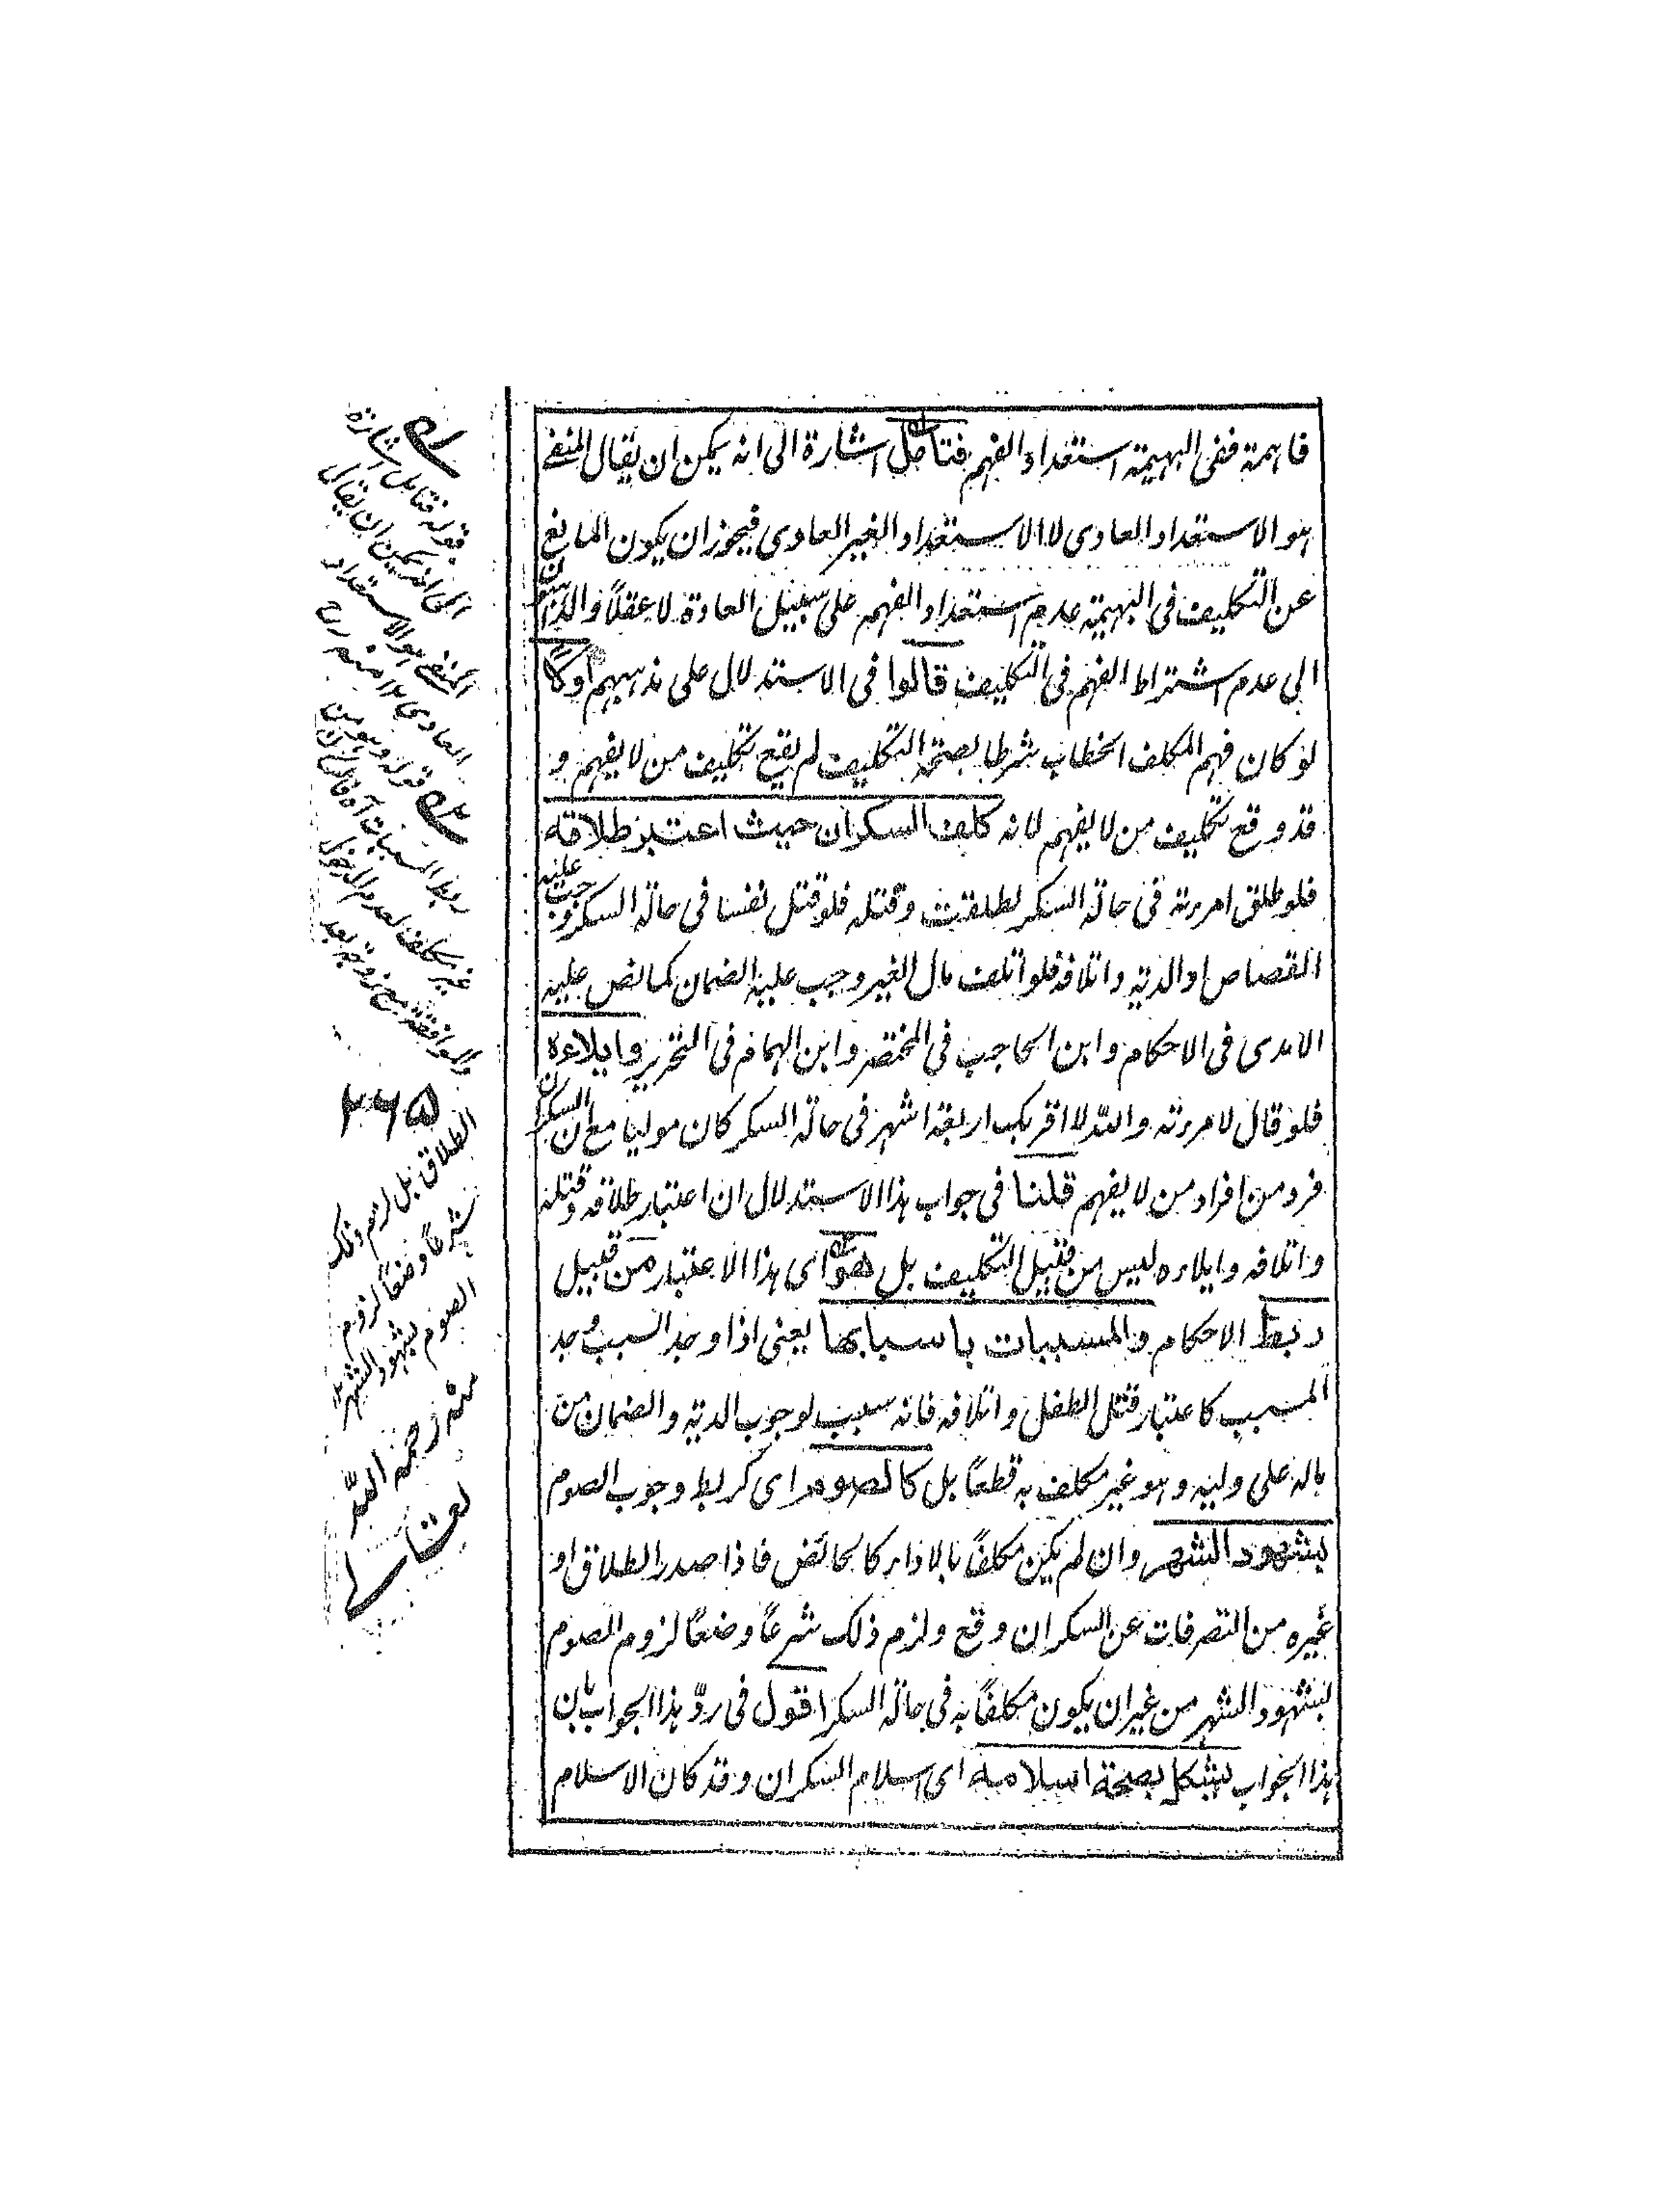 فاهمة ففى البهيمة استعداد الفهم فتامل اشارة الى انه يمكن ان يقال المنفى
هو الاستعداد العادى لا الاستعداد الغير العادى فيجوز ان يكون المانع
عن التكليف فى البهيمة عدم استعداد الفهم على سبيل العادة لا عقلاً والذاهبون
الى عدم اشتراط الفهم فى التكليف قالوا فى الاستدلال على مذهبهم اولاً
لو كان فهم المكلف الخطاب شرطا لصحة التكليف لم يقع تكليف من لا يفهم و
قد وقع تكليف من لا يفهم لانه كلف السكران حيث اعتبر طلاقه
فلو طلق امرءته فى حالة السكر لطلقت وقتله فلو قتل نفسا فى حالة السكر وجبت عليه
القصاص او الدية واتلافه فلو اتلف مال الغير وجب عليه الضمان كما نص عليه
الامدى فى الاحكام وابن الحاجب فى المختصر وابن الهمام فى التحرير وايلاءه
فلو قال لامرءته والله لا اقربك اربعة اشهر فى حالة السكر كان موليا مع ان السكران
فرد من افراد من لا يفهم قلنا فى جواب هذا الاستدلال ان اعتبار طلاقه وقتله
واتلافه وايلاءه ليس من قبيل التكليف بل هو اى هذا الاعتبار من قبيل
ربط الاحكام والمسببات باسبابها يعنى اذا وجد السبب وجد
المسبب كاعتبار قتل الطفل واتلافه فانه سبب لوجوب الدية والضمان من
ماله على وليه وهو غير مكلف به قطعاً بل كالصوم اى كربط وجوب الصوم
بشهود الشهر وان لم يكن مكلفاً بالاداء كالحائض فاذا صدر الطلاق او
غيره من التصرفات عن السكران وقع ولزم ذلك شرعاً وضعاً لزوم الصوم
بشهود الشهر من غير ان يكون مكلفاً به فى حالة السكر اقول فى ردّ هذا الجواب بان
هذا الجواب يشكل بصحة اسلامه اى اسلام السكران وقد كان الاسلام
قوله فتامل اشارة
الى انه يمكن ان يقال
المنفى هو الاستعداد
العادى ١٢ منه رح
قوله وهو من
ربط المسببات آه
غير مكلف لعدم
٢٦٥
الطلاق بل لزم ذلك
شرعاً وضعاً لزوم
الصوم بشهود الشهر ١٢
منه رحمه الله
تعالى